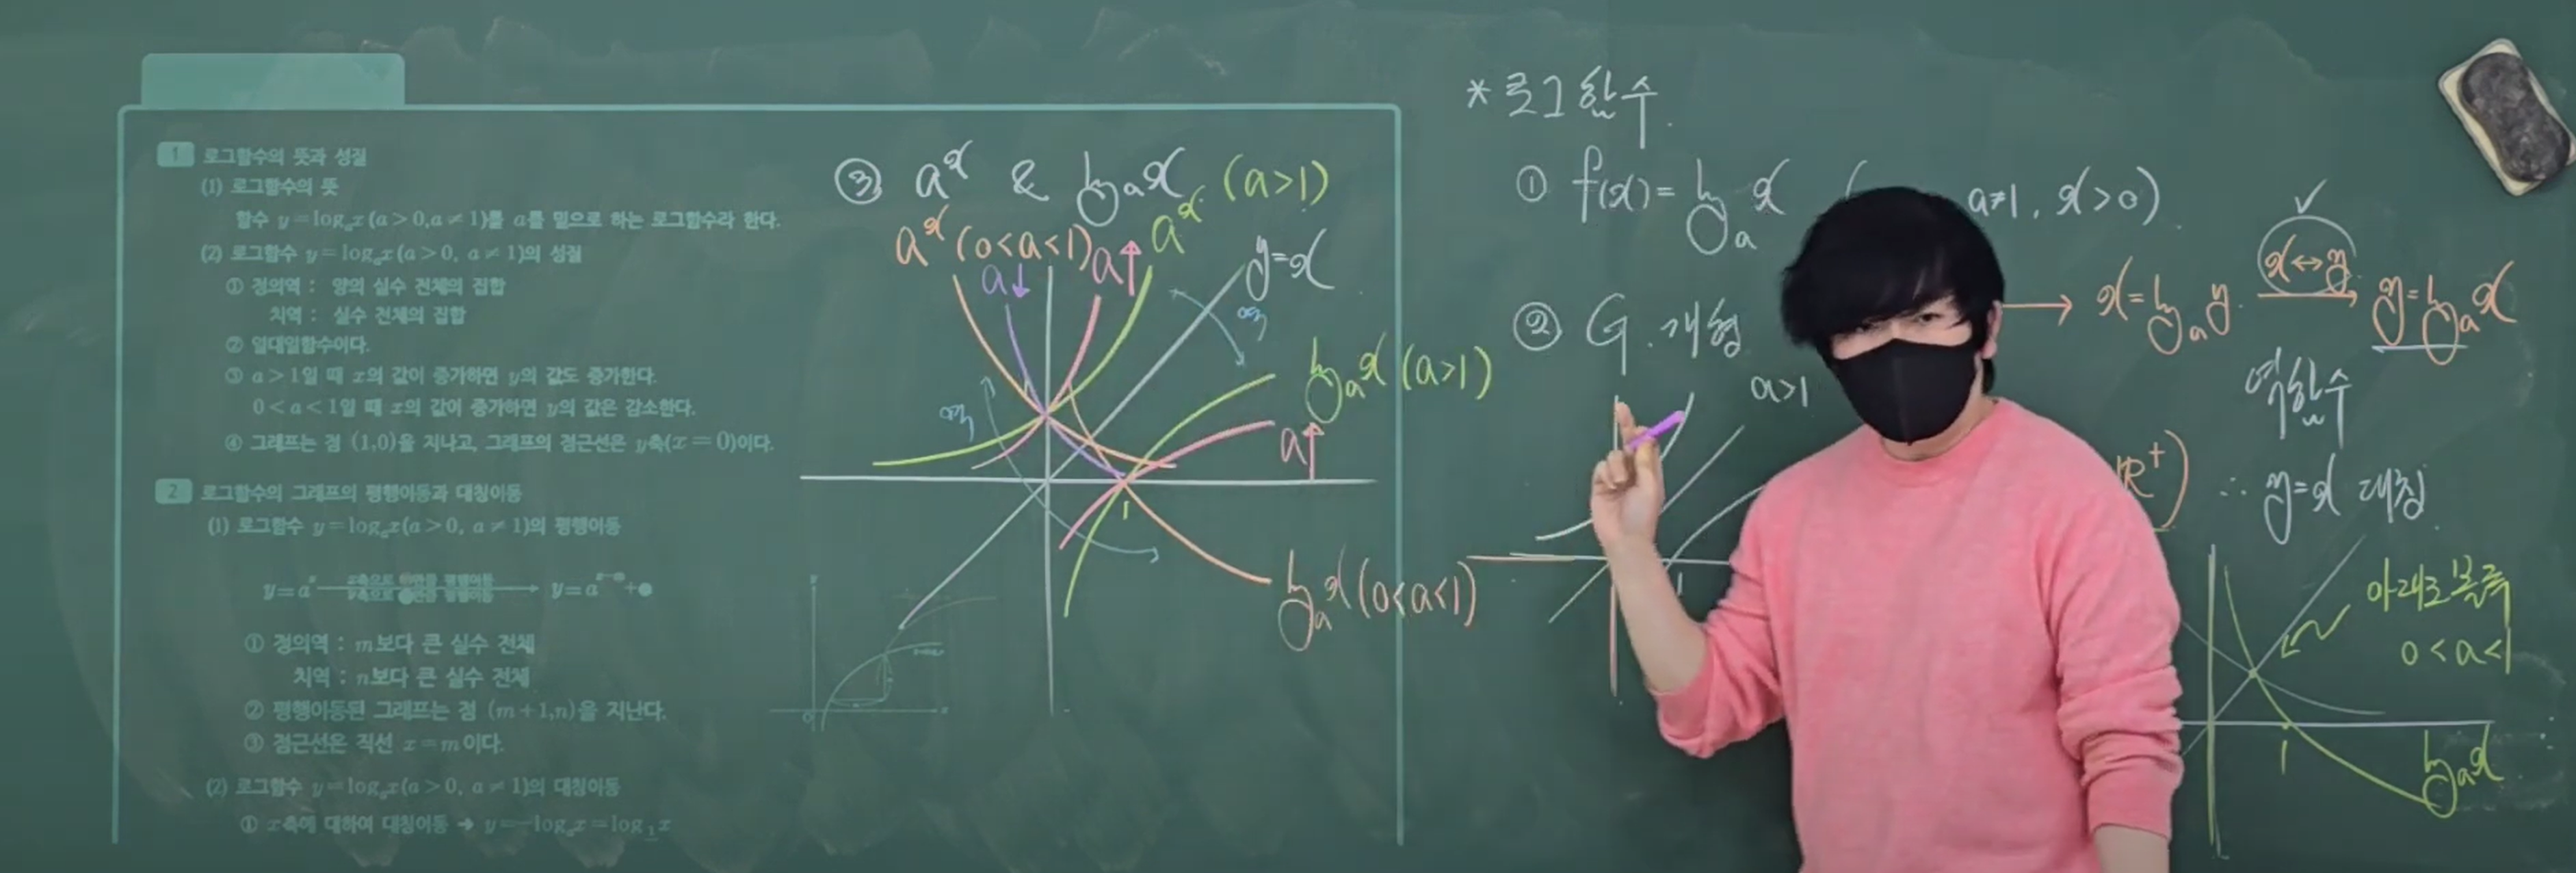 1 로그함수의 뜻과 성질
(1) 로그함수의 뜻
함수 y=logₐx(a>0,a≠1)를 a를 밑으로 하는 로그함수라 한다.
(2) 로그함수 y=logₐx(a>0, a≠1)의 성질
① 정의역 : 양의 실수 전체의 집합
치역 : 실수 전체의 집합
② 일대일함수이다.
③ a>1일 때 x의 값이 증가하면 y의 값도 증가한다.
0<a<1일 때 x의 값이 증가하면 y의 값은 감소한다.
④ 그래프는 점 (1,0)을 지나고, 그래프의 점근선은 y축(x=0)이다.
2 로그함수의 그래프의 평행이동과 대칭이동
(1) 로그함수 y=logₐx(a>0, a≠1)의 평행이동
① 정의역 : m보다 큰 실수 전체
치역 : n보다 큰 실수 전체
② 평행이동된 그래프는 점 (m+1,n)을 지난다.
③ 점근선은 직선 x=m이다.
(2) 로그함수 y=logₐx(a>0, a≠1)의 대칭이동
① x축에 대하여 대칭이동 → y=-logₐx=log
③ aˣ & logₐx
aˣ (0<a<1)
a↓
a↑
aˣ (a>1)
y=x
logₐx (a>1)
a↑
1
logₐx (0<a<1)
* 로그함수.
① f(x)=logₐx ( a≠1, x>0)
② G.개형
a>1
1
→ x=logₐy
x↔y
y=logₐx
역함수
R⁺)
∴ y=x 대칭
아래로 볼록
0<a<1
1
logₐx